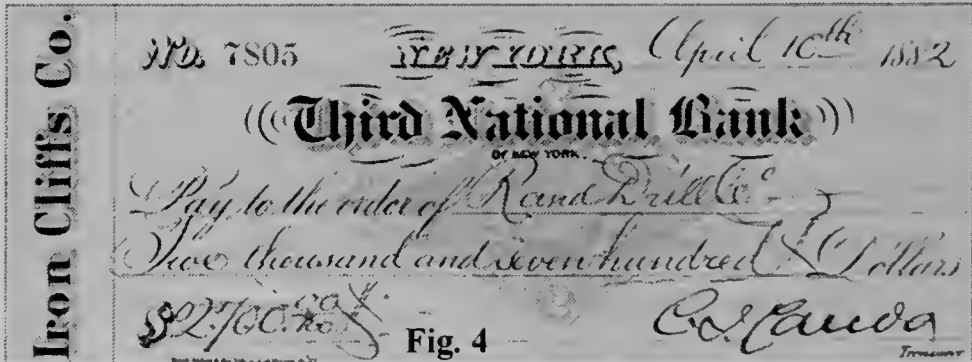 Iron Cliffs Co.
No. 7805 NEW YORK, April 10th 1882
Third National Bank
OF NEW YORK.
Pay to the order of Rand Drill Co
Two thousand and seven hundred Dollars
$2700.
Fig. 4
Treasurer